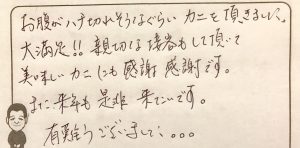 お腹がハチ切れそうなぐらい カニを頂きまして、
大満足!! 親切な接客もして頂いて
美味しいカニにも感謝 感謝です。
また来年も是非 来たいです。
有難うございまして、。。。